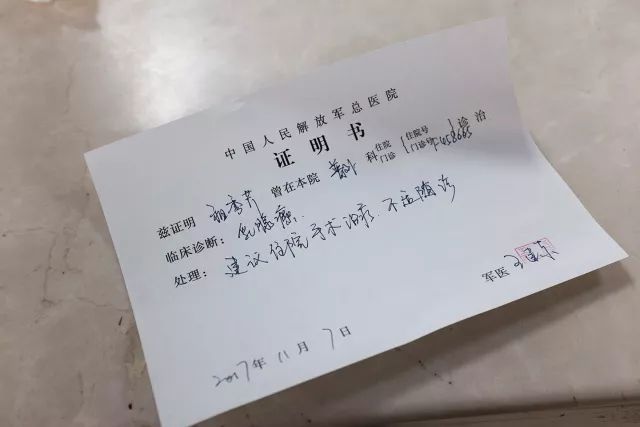 中国人民解放军总医院
证明书
兹证明 曾在本院 科 住院 门诊 (住院号 门诊号 F458665) 诊治
临床诊断: 乳腺癌.
处理: 建议住院手术治疗. 不适随诊
军医
2017年11月7日